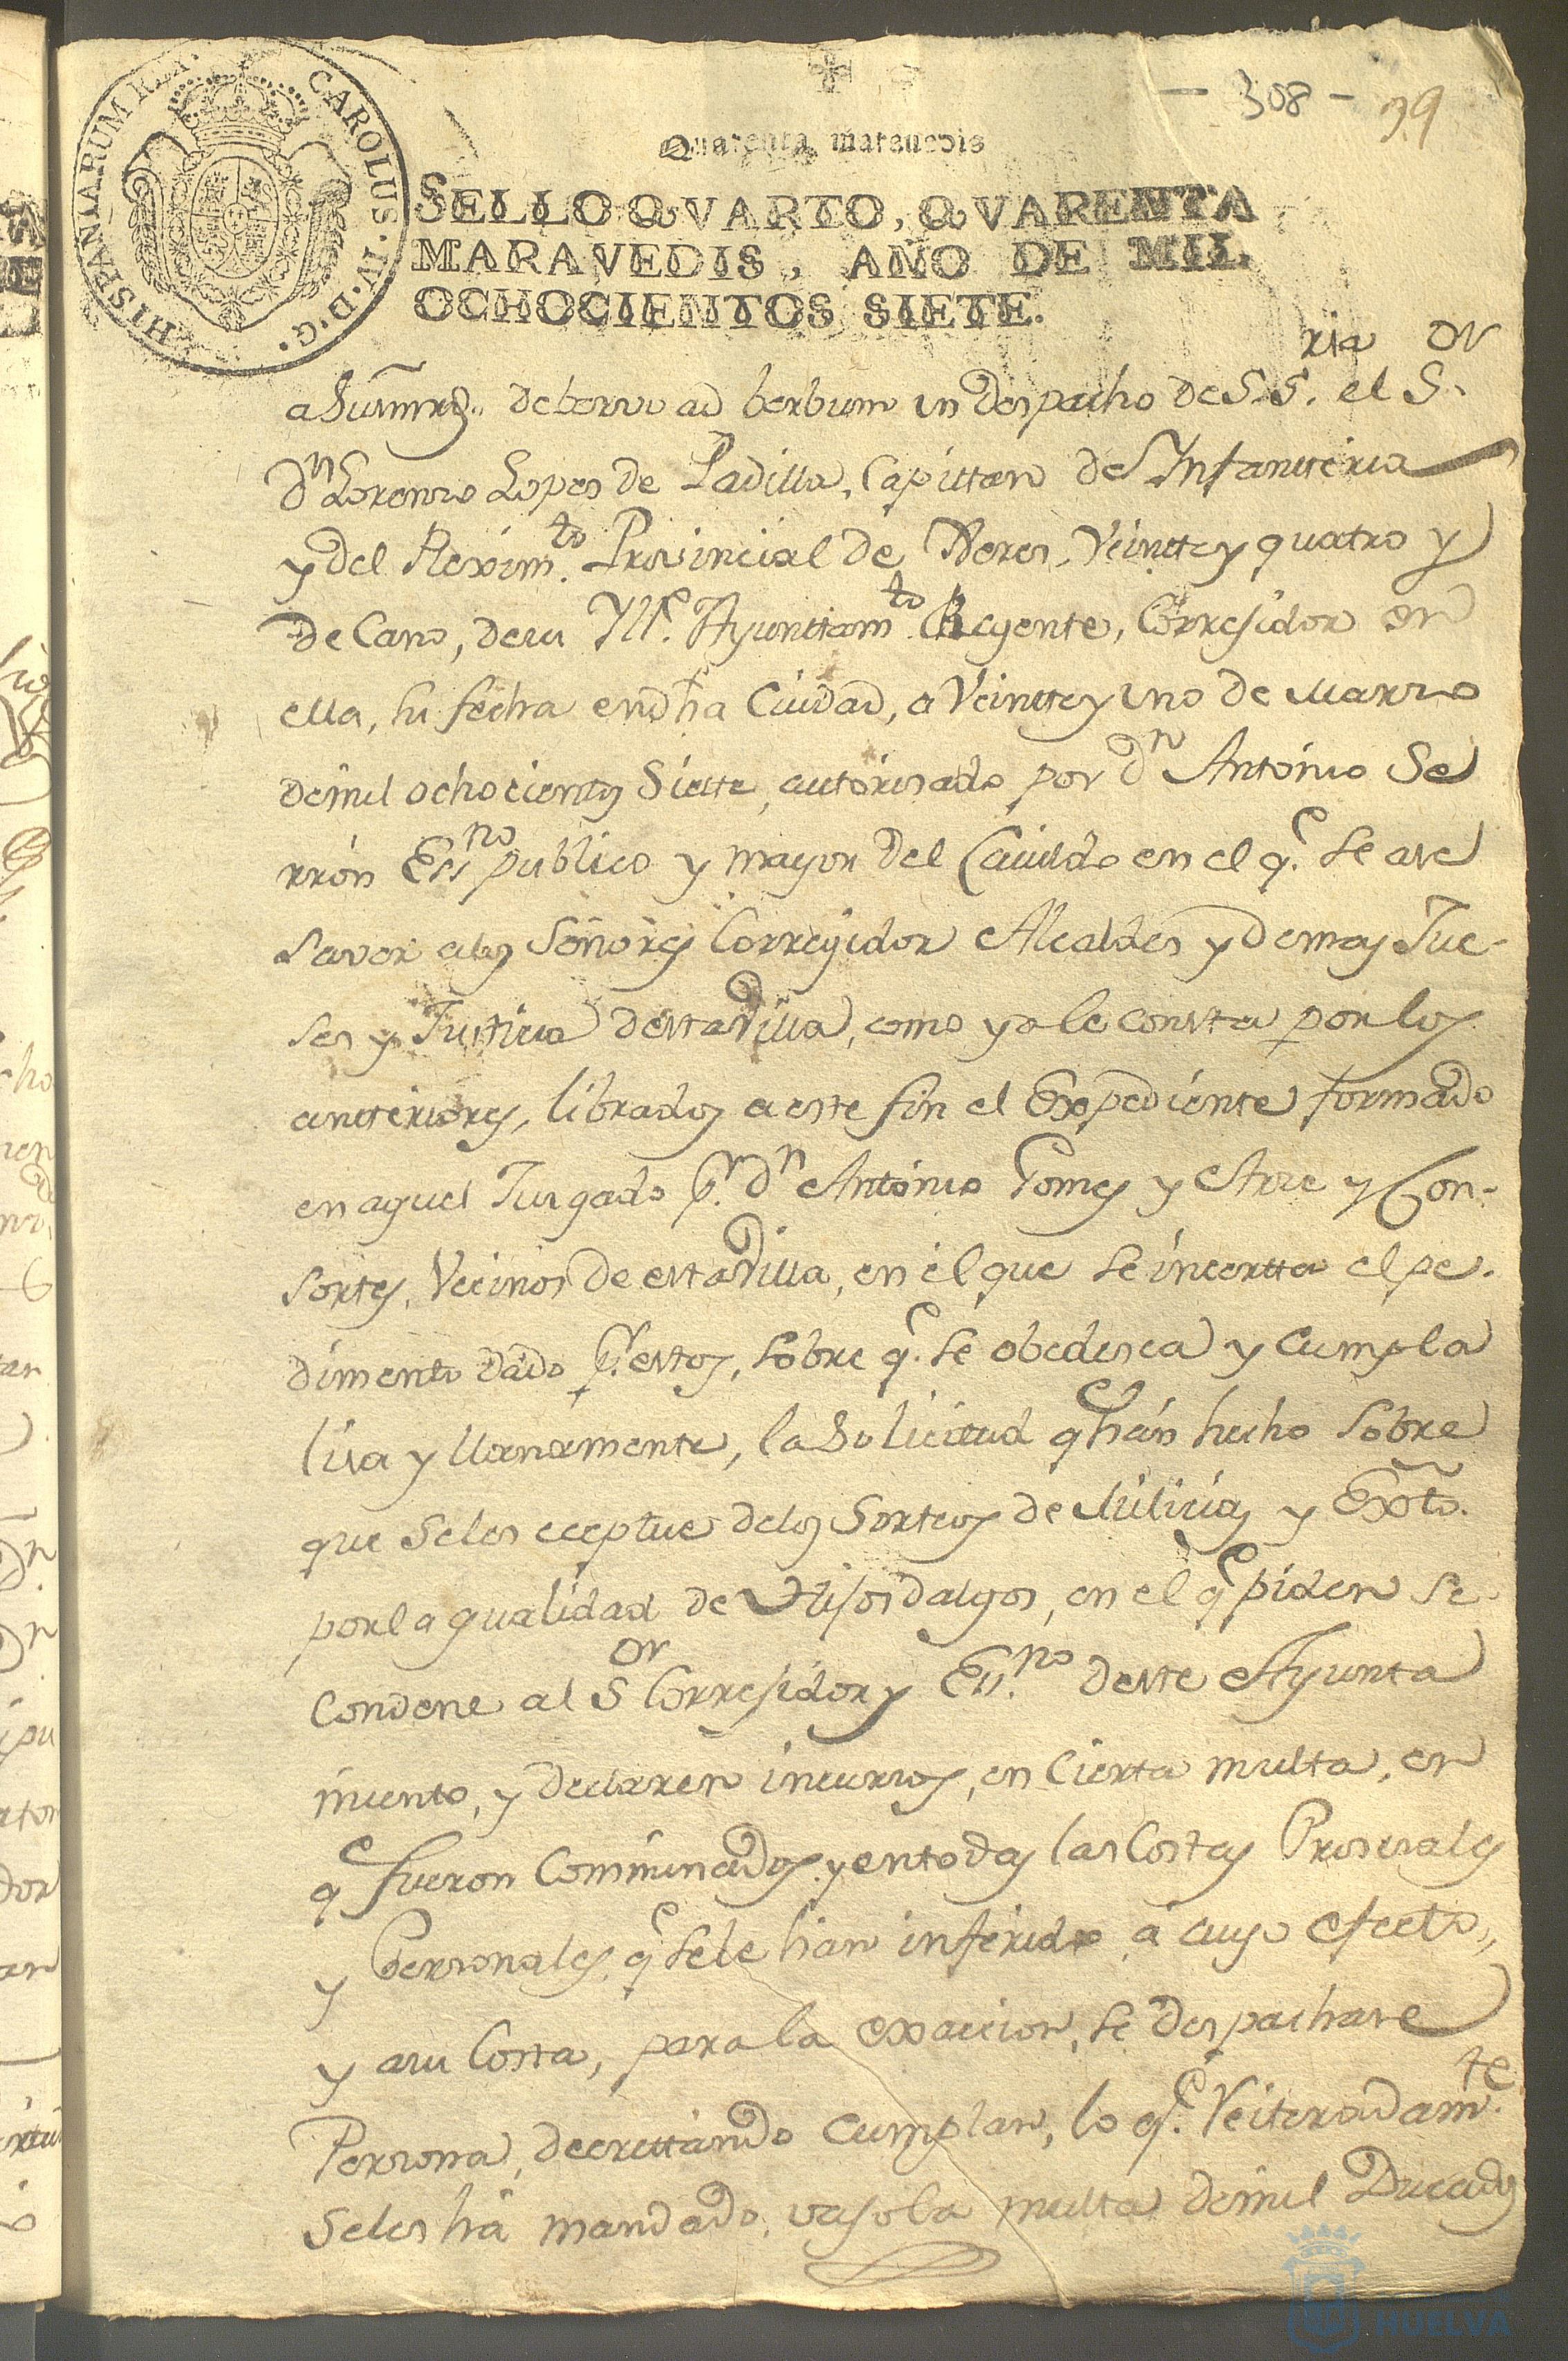 - 308 - 39
HISPANIARUM REX. CAROLUS. IV. D. G.
Quarenta maravedis
SELLO QVARTO, QVARENTA
MARAVEDIS, AÑO DE MIL
OCHOCIENTOS SIETE.
a Sumrd. de berbo ad berbum un despacho de S. Sria. el Sor.
Dn Lorenzo Lopes de Padilla, Capittan de Infantteria
y del Reximto. Provincial de Xeres, Veintte y quatro y
de Cano, de su Ylle. Ayunttamto. Regente, Corregidor en
ella, su fecha en dha Ciudad, a Veintte y uno de Marzo
de mil ochocientos Siette, autorisado por dn Antonio Se
rrón Essno publico y mayor del Cavildo en el qe. se ase
saver a los Señores Corregidor Alcaldes y demas Jue-
ses y Justicia desta Villa, como ya le consta por los
antteriores, librados a este fin el Expediente formado
en aquel Jusgado pr. dn Antonio Gomes y Arze y Con-
sortes, Vecinos de esta Villa, en el que se incertta el pe-
dimento dado pr. estos, sobre qe. se obedesca y cumpla
lisa y llanamente, la Solicitud qe hán hecho sobre
que se les eceptue de los Sorteos de Milicias y Exto.
por la qualidad de Hijosdalgos, en el qe piden se
Condene al Sor Corregidor y Essno. deste Ayunta
miento, y declaren incursos, en Cierta multa, en
qe fueron Comminados, y en todas las Costas Prosesales
y Personales, qe se le han inferido á cuyo efecto,
y a su Costa, para la exaccion, se despachase
Persona, decrettando cumplan, lo qe. Reiteradamte.
se les há mandado, vajo la multa de mil Ducados
HUELVA